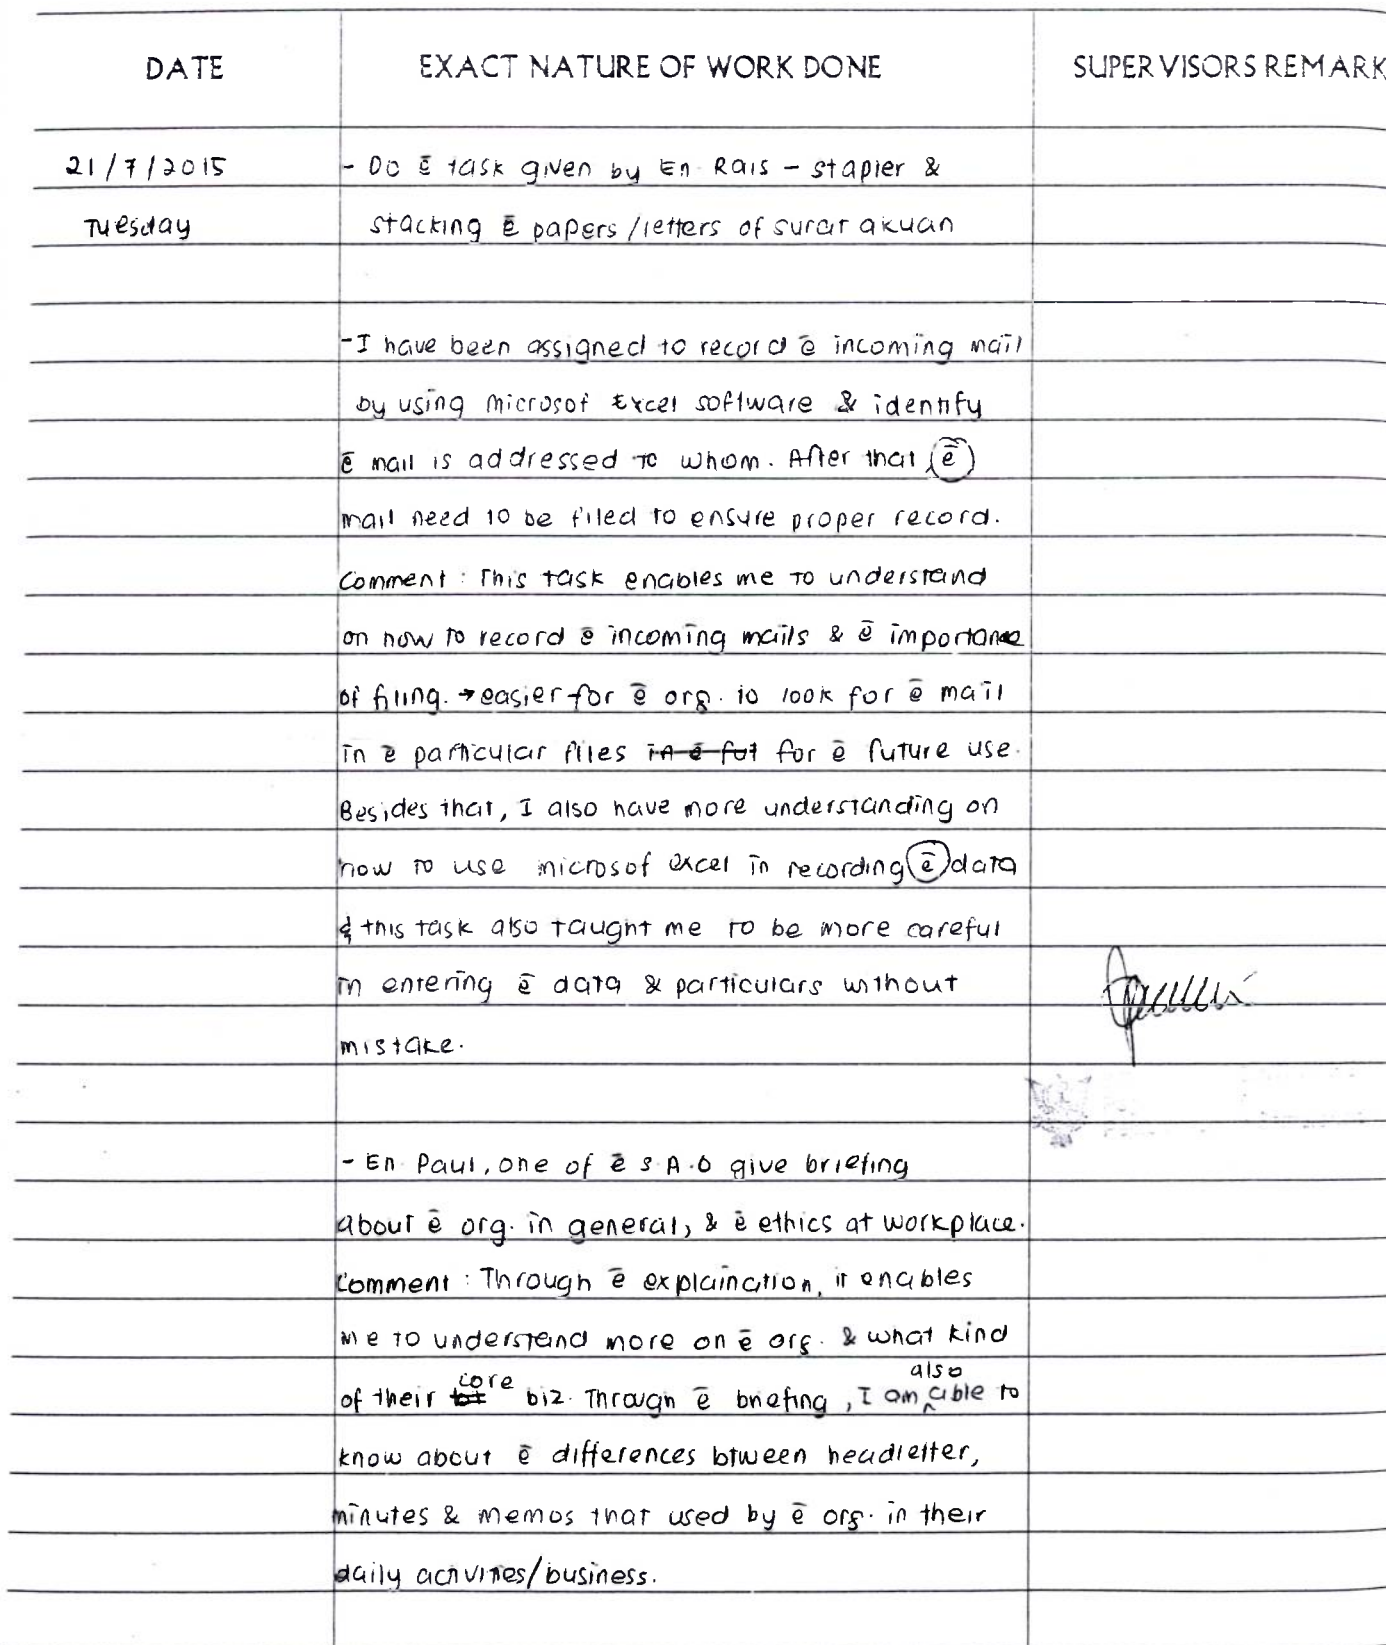 DATE EXACT NATURE OF WORK DONE SUPERVISORS REMARK
21/7/2015 - Do ē task given by En. Rais - stapler &
Tuesday stacking ē papers/letters of surat akuan
- I have been assigned to record ē incoming mail
by using microsof Excel software & identify
ē mail is addressed to whom. After that, ē
mail need to be filed to ensure proper record.
Comment : This task enables me to understand
on how to record ē incoming mails & ē importance
of filing. → easier for ē org. to look for ē mail
in ē particular files in ē fut for ē future use.
Besides that, I also have more understanding on
how to use microsof excel in recording ē data
& this task also taught me to be more careful
in entering ē data & particulars without
mistake.
- En. Paul, one of ē S.A.O give briefing
about ē org. in general, & ē ethics at workplace.
Comment : Through ē explaination, it enables
me to understand more on ē org. & what kind
of their core biz. Through ē briefing, I am also able to
know about ē differences btween headletter,
minutes & memos that used by ē org. in their
daily activities/business.